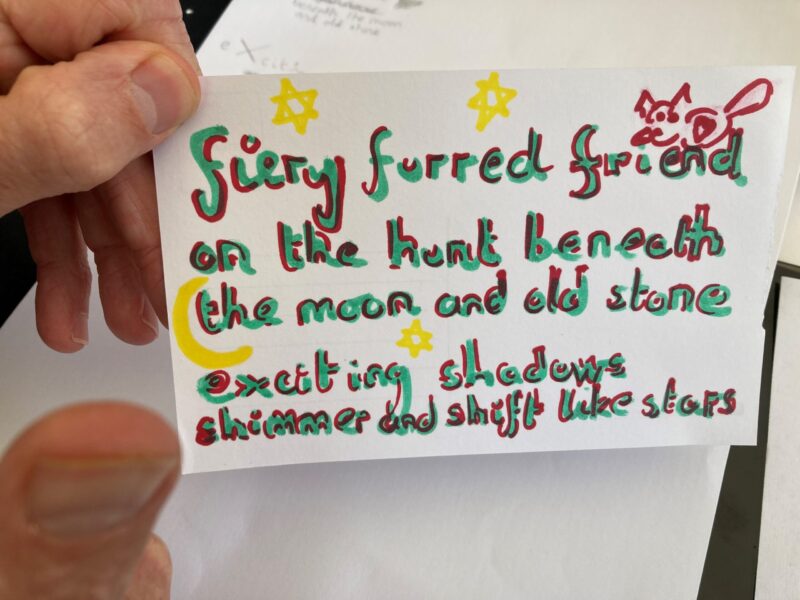 beneath the moon
and old stone
eXciti
fiery furred friend
on the hunt beneath
the moon and old stone
exciting shadows
shimmer and shift like stars